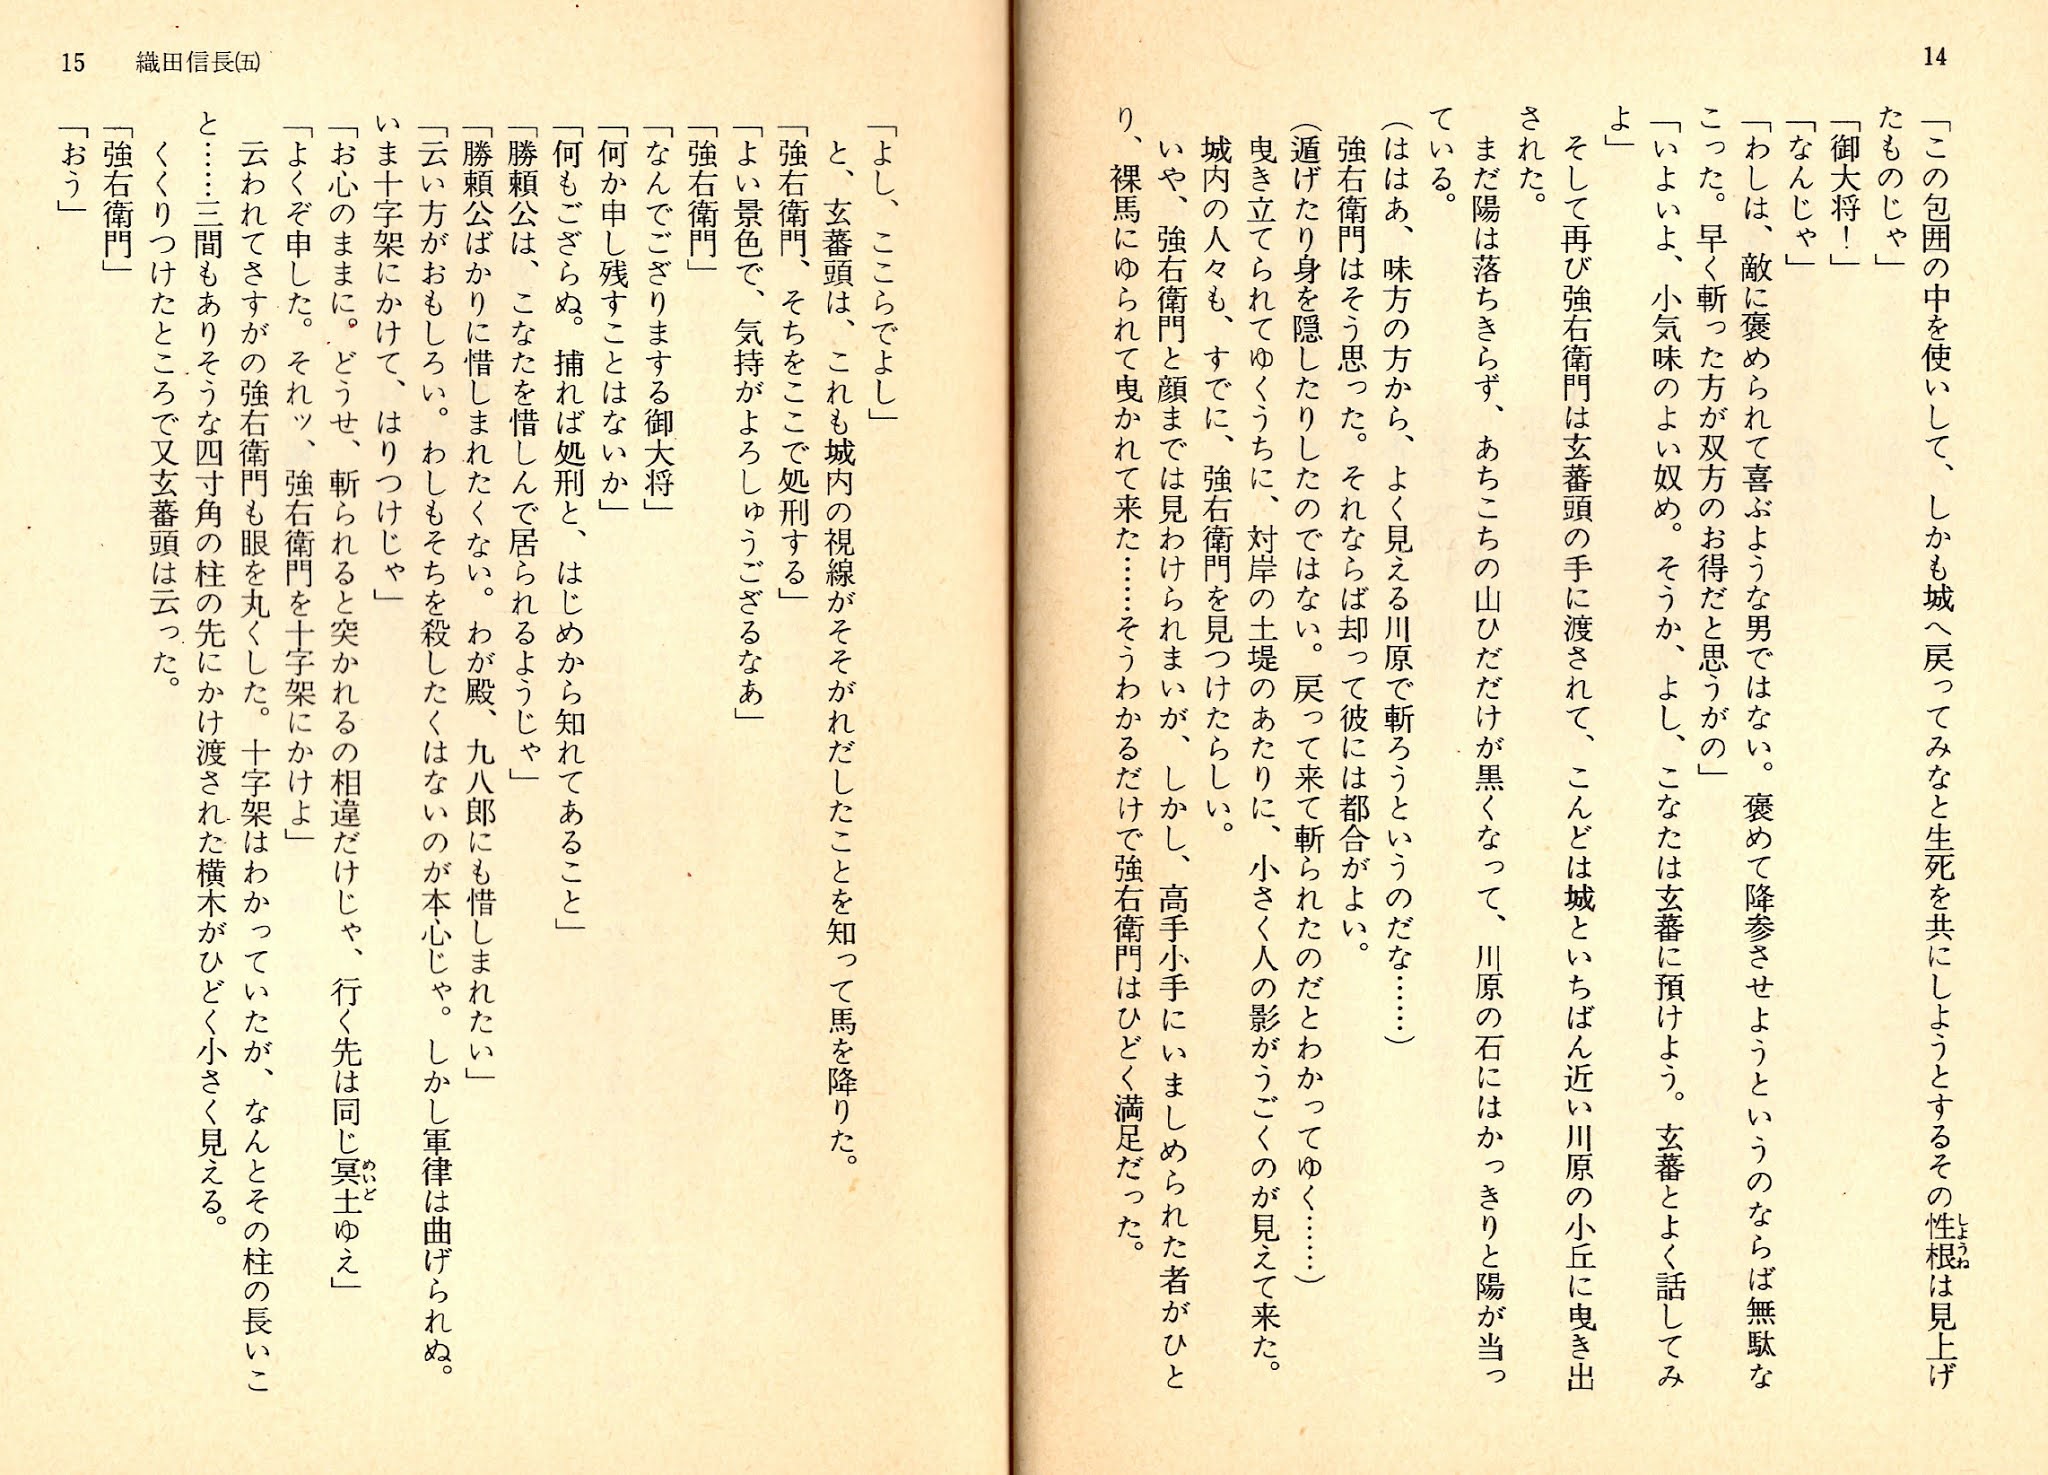 14
「この包囲の中を使いして、しかも城へ戻ってみなと生死を共にしようとするその性根は見上げ
しようね
たものじゃ」
「御大将！」
「なんじゃ」
「わしは、敵に褒められて喜ぶような男ではない。褒めて降参させようというのならば無駄な
こった。早く斬った方が双方のお得だと思うがの」
「いよいよ、小気味のよい奴め。そうか、よし、こなたは玄蕃に預けよう。玄蕃とよく話してみ
よ」
そして再び強右衛門は玄蕃頭の手に渡されて、こんどは城といちばん近い川原の小丘に曳き出
された。
まだ陽は落ちきらず、あちこちの山ひだだけが黒くなって、川原の石にはかっきりと陽が当っ
ている。
（ははあ、味方の方から、よく見える川原で斬ろうというのだな……）
強右衛門はそう思った。それならば却って彼には都合がよい。
（遁げたり身を隠したりしたのではない。戻って来て斬られたのだとわかってゆく……）
曳き立てられてゆくうちに、対岸の土堤のあたりに、小さく人の影がうごくのが見えて来た。
城内の人々も、すでに、強右衛門を見つけたらしい。
いや、強右衛門と顔までは見わけられまいが、しかし、高手小手にいましめられた者がひと
り、裸馬にゆられて曳かれて来た……そうわかるだけで強右衛門はひどく満足だった。
15 織田信長㈤
「よし、ここらでよし」
と、玄蕃頭は、これも城内の視線がそそがれだしたことを知って馬を降りた。
「強右衛門、そちをここで処刑する」
「よい景色で、気持がよろしゅうござるなあ」
「強右衛門」
「なんでござりまする御大将」
「何か申し残すことはないか」
「何もござらぬ。捕れば処刑と、はじめから知れてあること」
「勝頼公は、こなたを惜しんで居られるようじゃ」
「勝頼公ばかりに惜しまれたくない。わが殿、九八郎にも惜しまれたい」
「云い方がおもしろい。わしもそちを殺したくはないのが本心じゃ。しかし軍律は曲げられぬ。
いま十字架にかけて、はりつけじゃ」
「お心のままに。どうせ、斬られると突かれるの相違だけじゃ、行く先は同じ冥土ゆえ」
めいど
「よくぞ申した。それッ、強右衛門を十字架にかけよ」
云われてさすがの強右衛門も眼を丸くした。十字架はわかっていたが、なんとその柱の長いこ
と……三間もありそうな四寸角の柱の先にかけ渡された横木がひどく小さく見える。
くくりつけたところで又玄蕃頭は云った。
「強右衛門」
「おう」